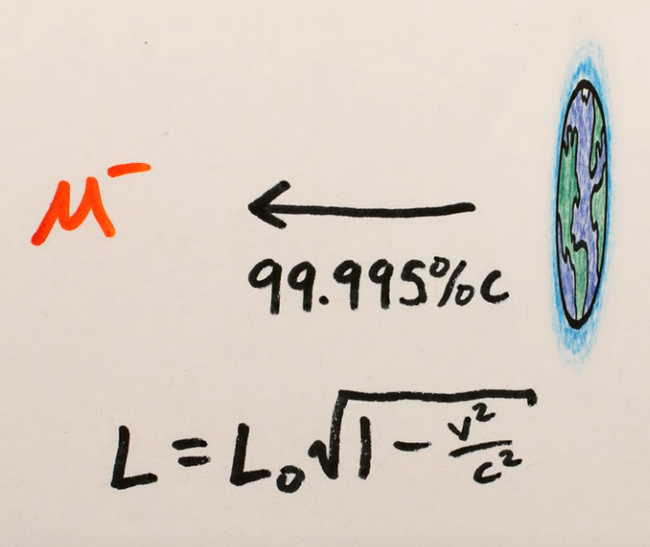 μ⁻
99.995%c
L = L₀√(1 - v²/c²)